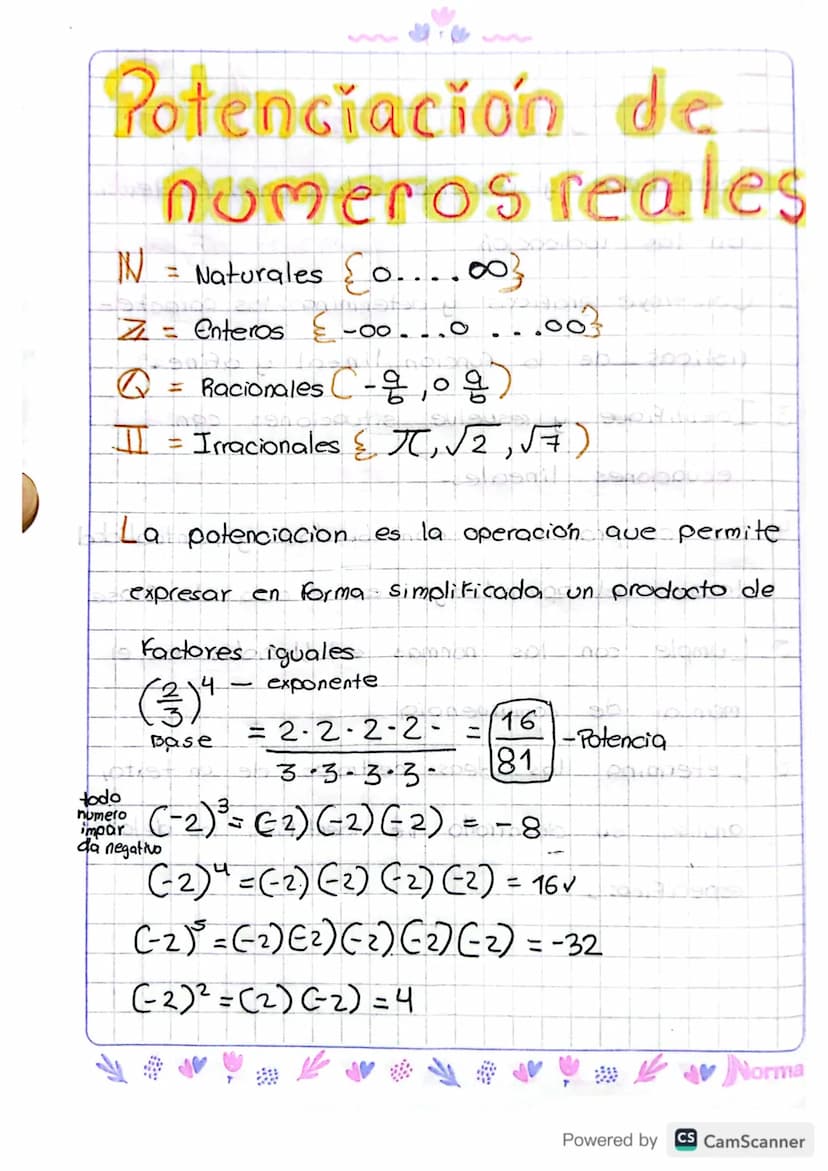 Potenciación de
numeros reales
IN = Naturales {0....∞}
Z = Enteros {-∞...0 ...∞}
Q = Racionales (-a/b, 0 a/b)
II = Irracionales { π, √2, √7 )
La potenciacion es la operación que permite
expresar en forma simplificada un producto de
factores iguales
(2/3)⁴ — exponente
Base = 2·2·2·2· / 3·3·3·3· = 16/81 - Potencia
todo
numero
impar
da negativo
(-2)³= (-2)(-2)(-2) = -8
(-2)⁴ =(-2)(-2)(-2)(-2) = 16✓
(-2)⁵ =(-2)(-2)(-2)(-2)(-2) = -32
(-2)² =(2)(-2) =4
Norma
Powered by CS CamScanner